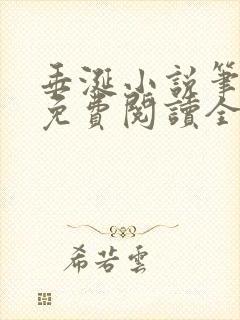 垂涎小説筆
免費閱讀全
希若雲